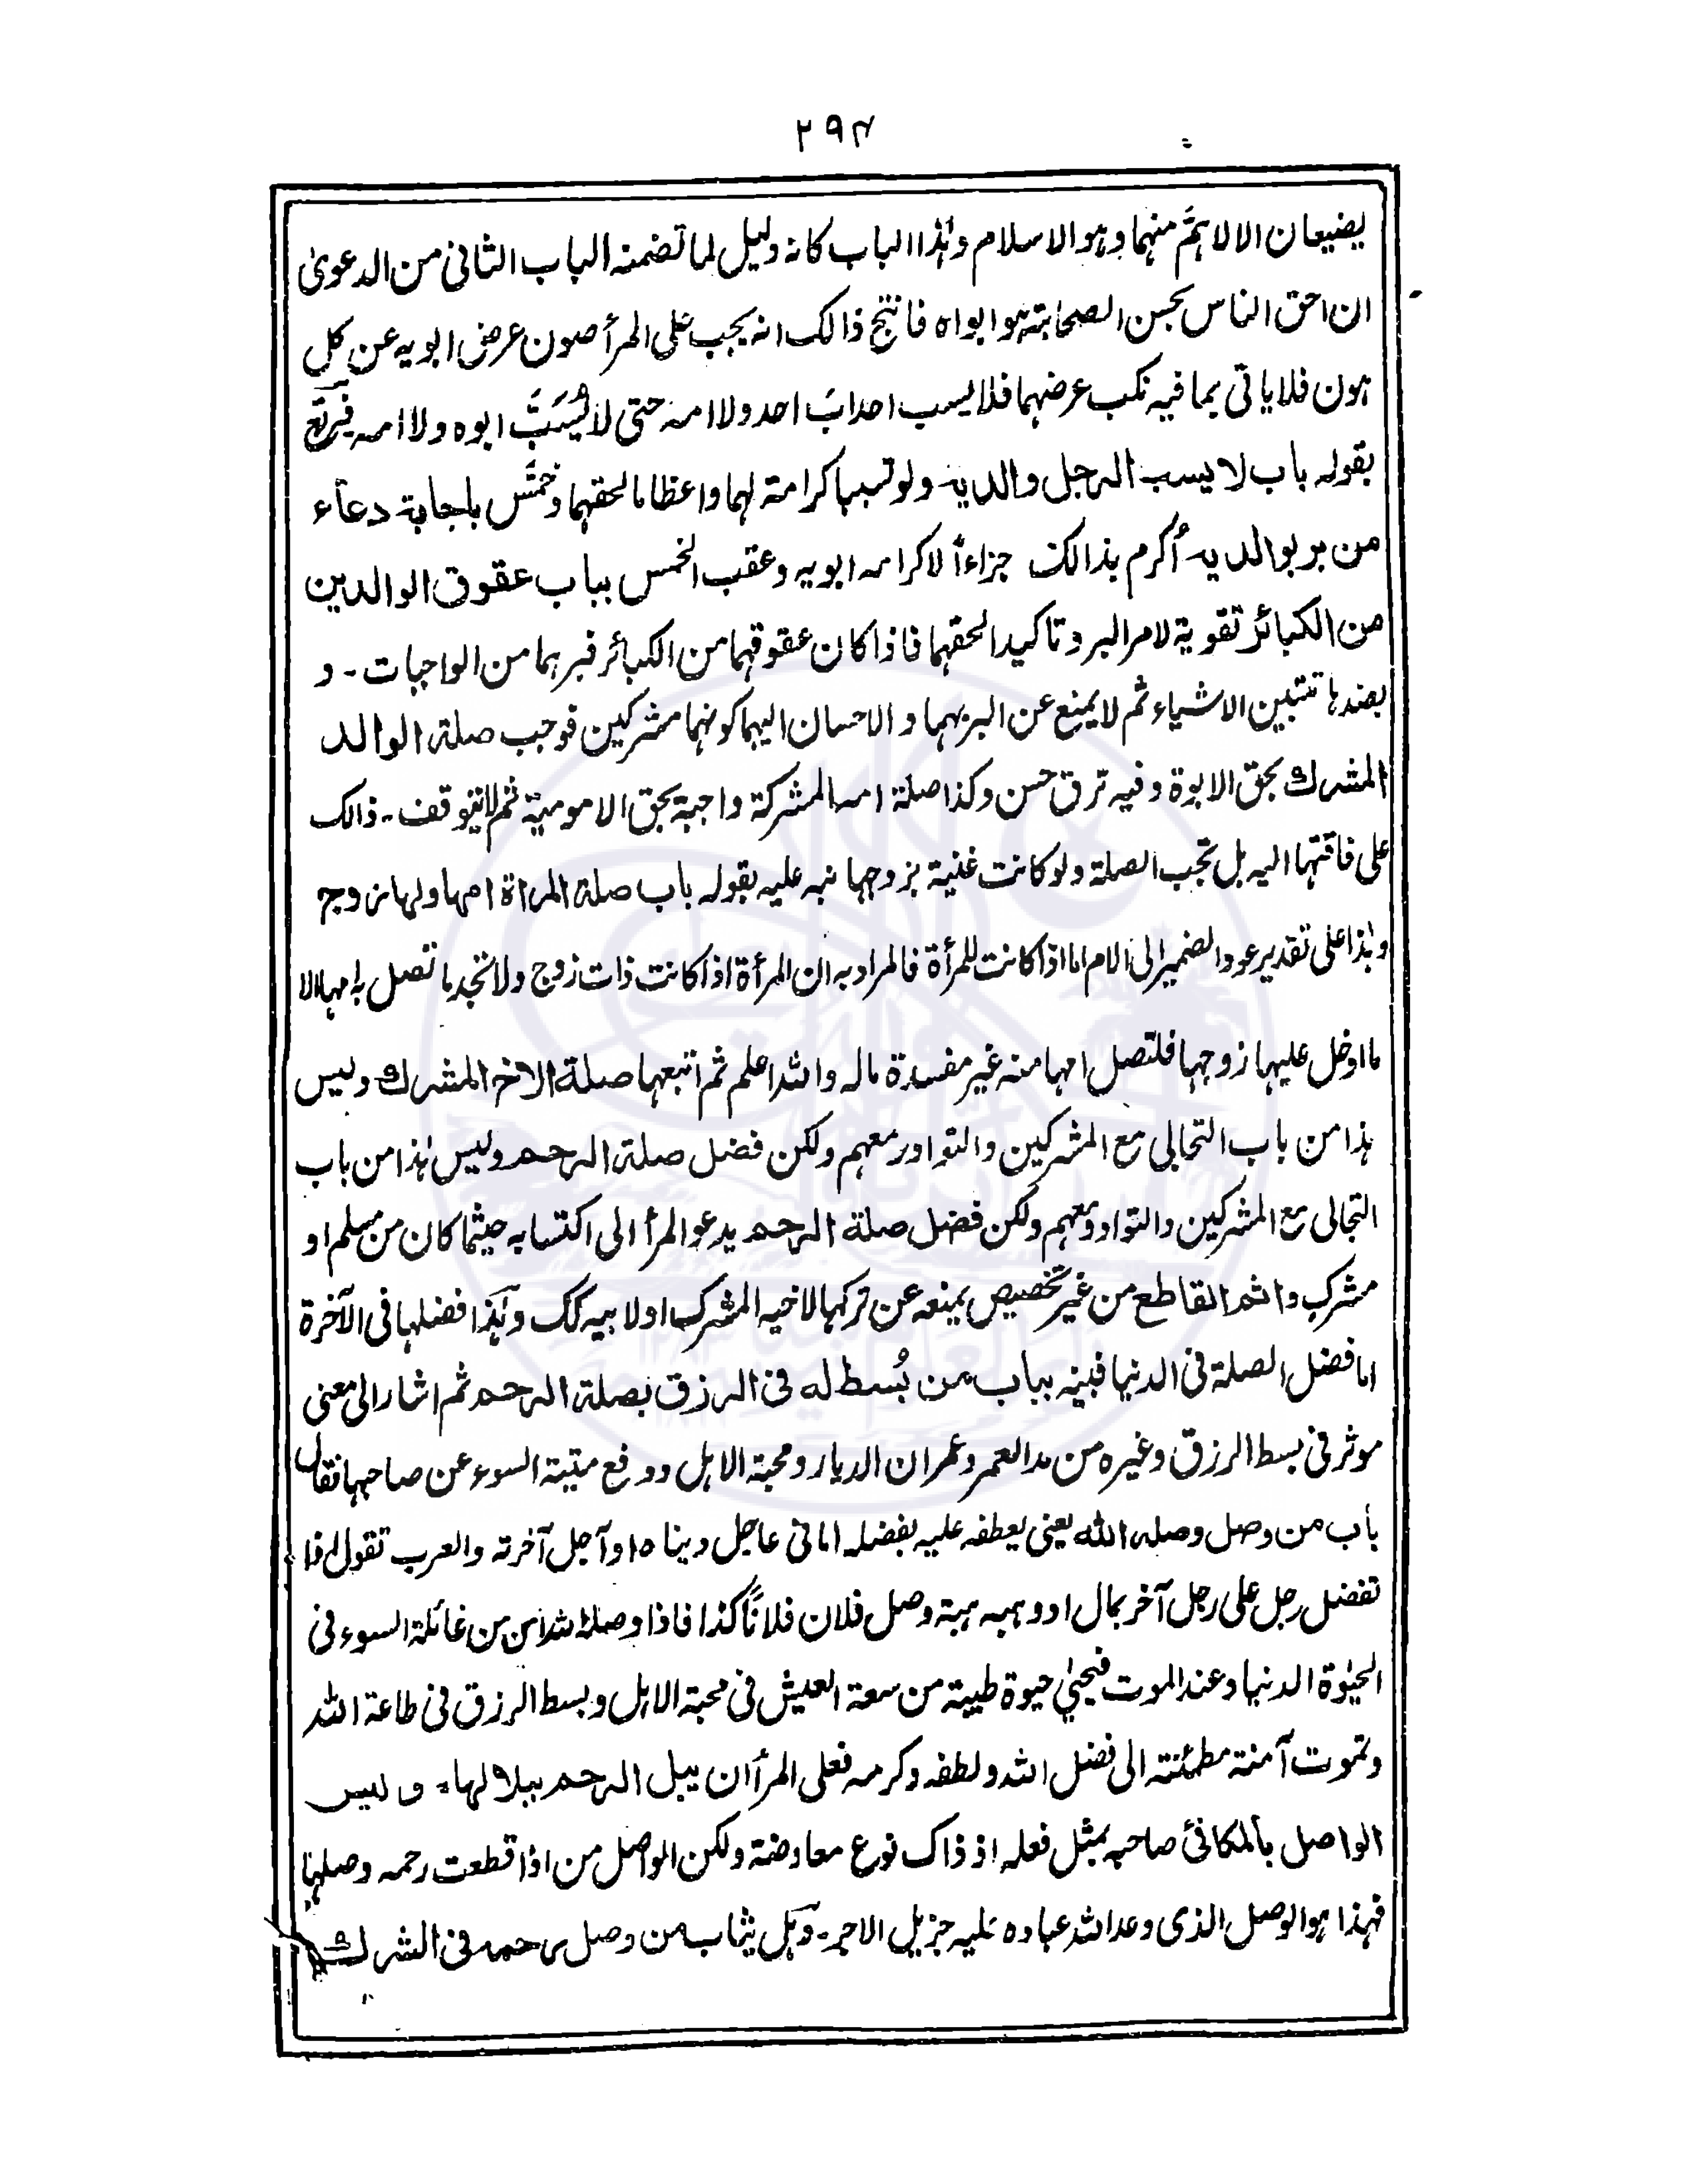 ۲۹۴
یضیعان الا لاہمَّ منہما وہو الاسلام وہٰذا الباب کانہ دلیل لما تضمنہ الباب الثانی من الدعویٰ
ان احق الناس بحسن الصحابۃ ہو ابواہ فانتج ذالک انہ یجب علی المرأ صون عرض ابویہ عن کل
ہون فلا یاتی بما فیہ نکب عرضہما فلا یسب احد ابَ احد ولا امہ حتی لا یُسَبَّ ابوہ ولا امہ
بقولہ باب لا یسب الرجل والدیہ ولو تسببا کرامۃ لہما واعظاما لحقہما وخمَّس باجابۃ دعآء
من بر بوالدیہ اُکرم بذالک جزاءاً لاکرامہ ابویہ وعقب الخمس بباب عقوق الوالدین
من الکبائر تقویۃ لامر البر وتاکیدا لحقہما فاذا کان عقوقہما من الکبائر فبرہما من الواجبات ۔ و
بضدہا تتبین الاشیاء ثم لا یمنع عن البر بہما والاحسان الیہما کونہما مشرکین فوجب صلۃ الوالد
المشرک بحق الابوۃ وفیہ ترق حسن وکذا صلۃ امہ المشرکۃ واجبۃ بحق الامومیۃ ثم لا یتوقف ۔ ذالک
علی فاقتہا الیہ بل تجب الصلۃ ولو کانت غنیۃ بزوجہا نبہ علیہ بقولہ باب صلۃ المراۃ امہا ولہا زوج
وہٰذا علی تقدیر عود الضمیر الی الام اما اذا کانت للمرأۃ فالمراد بہ ان المرأۃ اذا کانت ذات زوج ولا تجد ما تصل بہ امہا الا
ما ادخل علیہا زوجہا فلتصل امہا منہ غیر مفسدۃ مالہ واللہ اعلم ثم اتبعہا صلۃ الاخ المشرک ولیس
ہذا من باب التحالی مع المشرکین والتوادر معہم ولکن فضل صلۃ الرحم ولیس ہٰذا من باب
التحالی مع المشرکین والتواد ومعہم ولکن فضل صلۃ الرحم یدعو المرأ الی اکتسابہ حیثما کان من مسلم او
مشرک واثم القاطع من غیر تخصیص یمنعہ عن ترکہا لاخیہ المشرک او لابیہ کک وہٰذا فضلہا فی الآخرۃ
اما فضل الصلۃ فی الدنیا فبینہ بباب من بُسط لہ فی الرزق بصلۃ الرحم ثم اشار الی معنی
موثر فی بسط الرزق وغیرہ من مد العمر وعمران الدیار ومحبۃ الاہل ودفع میتۃ السوء عن صاحبہا فقال
باب من وصل وصلہ اللہ یعنی یعطفہ علیہ بفضلہ اما فی عاجل دیناہ او آجل آخرتہ والعرب تقول اذا
تفضل رجل علی رجل آخر بمال او وہبہ ہبۃ وصل فلان فلانًا کذا فاذا وصلہ اللہ امن من غائلۃ السوء فی
الحیٰوۃ الدنیا وعند الموت فیحییٰ حیوۃ طیبۃ من سعۃ العیش فی محبۃ الاہل وبسط الرزق فی طاعۃ اللہ
وتموت آمنۃ مطمئنۃ الی فضل اللہ ولطفہ وکرمہ فعلی المرأ ان یبل الرحم ببلالہا ۔ ولیس
الواصل بالمکافئ صاحبہ بمثل فعلہ اذ ذاک نوع معاوضۃ ولکن الواصل من اذا قطعت رحمہ وصلہا
فہذا ہو الوصل الذی وعد اللہ عبادہ علیہ جزیل الاجر ۔ وہل یثاب من وصل رحمہ فی الشرک